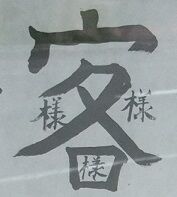 客
様 様
様